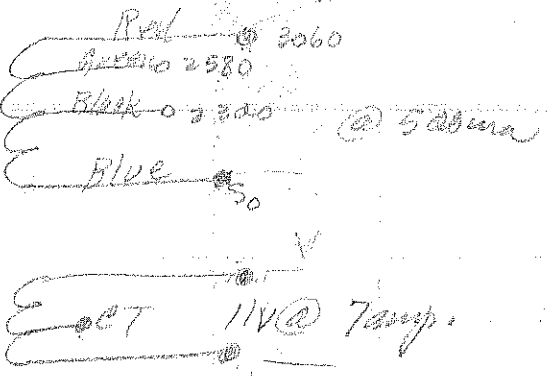 Red 3060
Green 2580
Black 2300 @ 500ma
Blue
50
CT 11V @ 7amp.